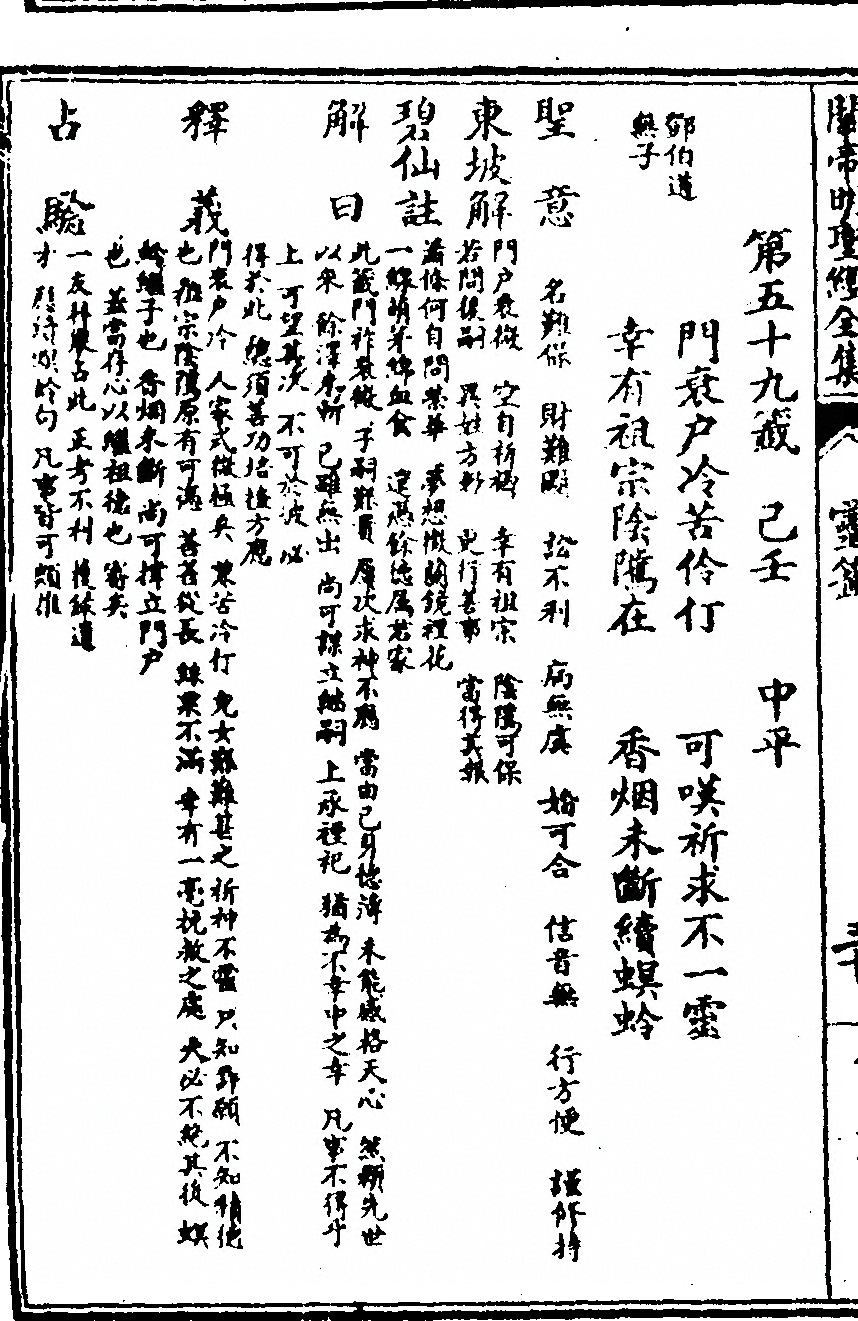 關帝明聖經全集 靈籤
第五十九籤 己壬 中平
鄧伯道
無子
門衰户冷苦伶仃 可嘆祈求不一靈
幸有祖宗陰隲在 香烟未斷續螟蛉
聖意 名難保 財難 訟不利 病無虞 婚可合 信音無 行方便 謹修持
東坡解 門户衰微 空自祈禱 幸有祖宗 陰隲可保
若問後嗣 異姓方 更行善事 當得美報
碧仙註 蕭條何自問榮華 夢想徴蘭鏡裡花
一線萌芽綿血食 定憑餘德属君家
解曰 此籤門祚衰微 子嗣艱 屢次求神不應 當由己身德薄 未能感格天心 然賴先世
以來 餘澤未斬 己雖無出 尚可謀立继嗣 上承禋祀 猶為不幸中之幸 凡事不得乎
上 可望其次 不可於彼 必
得於此 總須善功培植方應
釋義 門衰户冷 人家式微極矣 兼苦冷仃 兒女艱難甚之 祈神不靈 只知許願 不知積德
也 祖宗陰隲原有可 善善從長 不滿 幸有一毫挽救之處 天必不絶其後 螟
蛉繼子也 香烟未斷 尚可撑立門户
也 並當存心以繼祖德也 審矣
占驗 一友科 占此 正考不利 後錄遺
才 應詩 句 凡事皆可類推